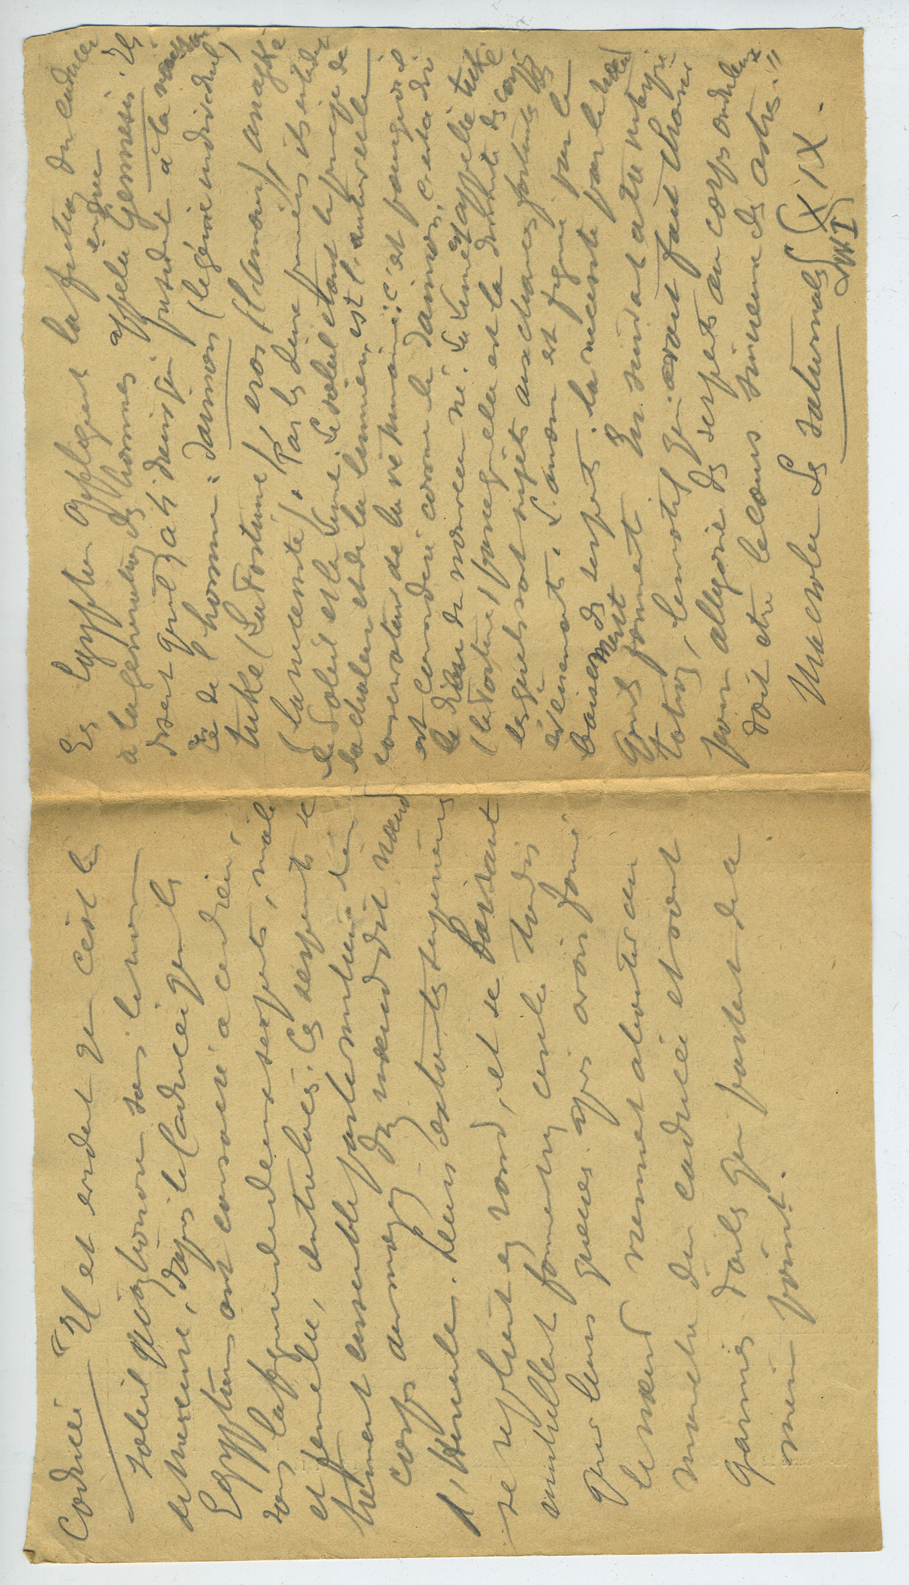 Caducée "Il est évident que c'est le
soleil qu'on honore sous le nom
de Mercure, d'après le Caducée que les
Egyptiens ont consacré à ce dieu,
sous la figure de deux serpents, mâle
et femelle, entrelacés. Ces serpents se
tiennent ensemble par le milieu du
corps au moyen d'un nœud dit nœud
d'Hercule. Leurs extrémités supérieures
se replient en rond, et se baisant
complètent forment un cercle tandis
que leurs queues après avoir formé
le nœud viennent aboutir au
manche du caducée et sont
garnies d'ailes qui partent de ce
même point.
Les Egyptiens appliquent la fiction du caducée
à la génération des hommes appelée Gennesis. Ils
disent qu'il y a 4 dieux qui président à la naissance
de l'homme : daimon (le génie individuel,
tuké (La Fortune), eros (l'amour) anagké
(la nécessité). Par les deux premiers ils entendent
le Soleil et la lune. Le soleil étant le principe de
la chaleur et de la lumière, est l'auteur et le
conservateur de la vie humaine : c'est pourquoi il
est considéré comme le daimon, c'est à dire
le dieu du nouveau né. La lune est appelée tuké
(la Fortune) parce qu'elle est la divinité des corps
lesquels sont sujets aux chances fortuites des
événements. L'amour est figuré par le
baisement des serpents. la nécessité par le nœud
qu'ils forment
totion, le motif qui avait fait choisir
pour allégorie des serpents au corps onduleux
doit être le cours sinueux des astres."
Macrobe Les Saturnales XIX.
Liv I